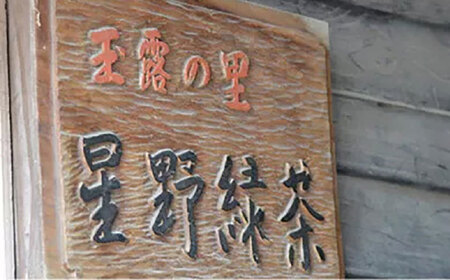 玉露の里
星野緑茶